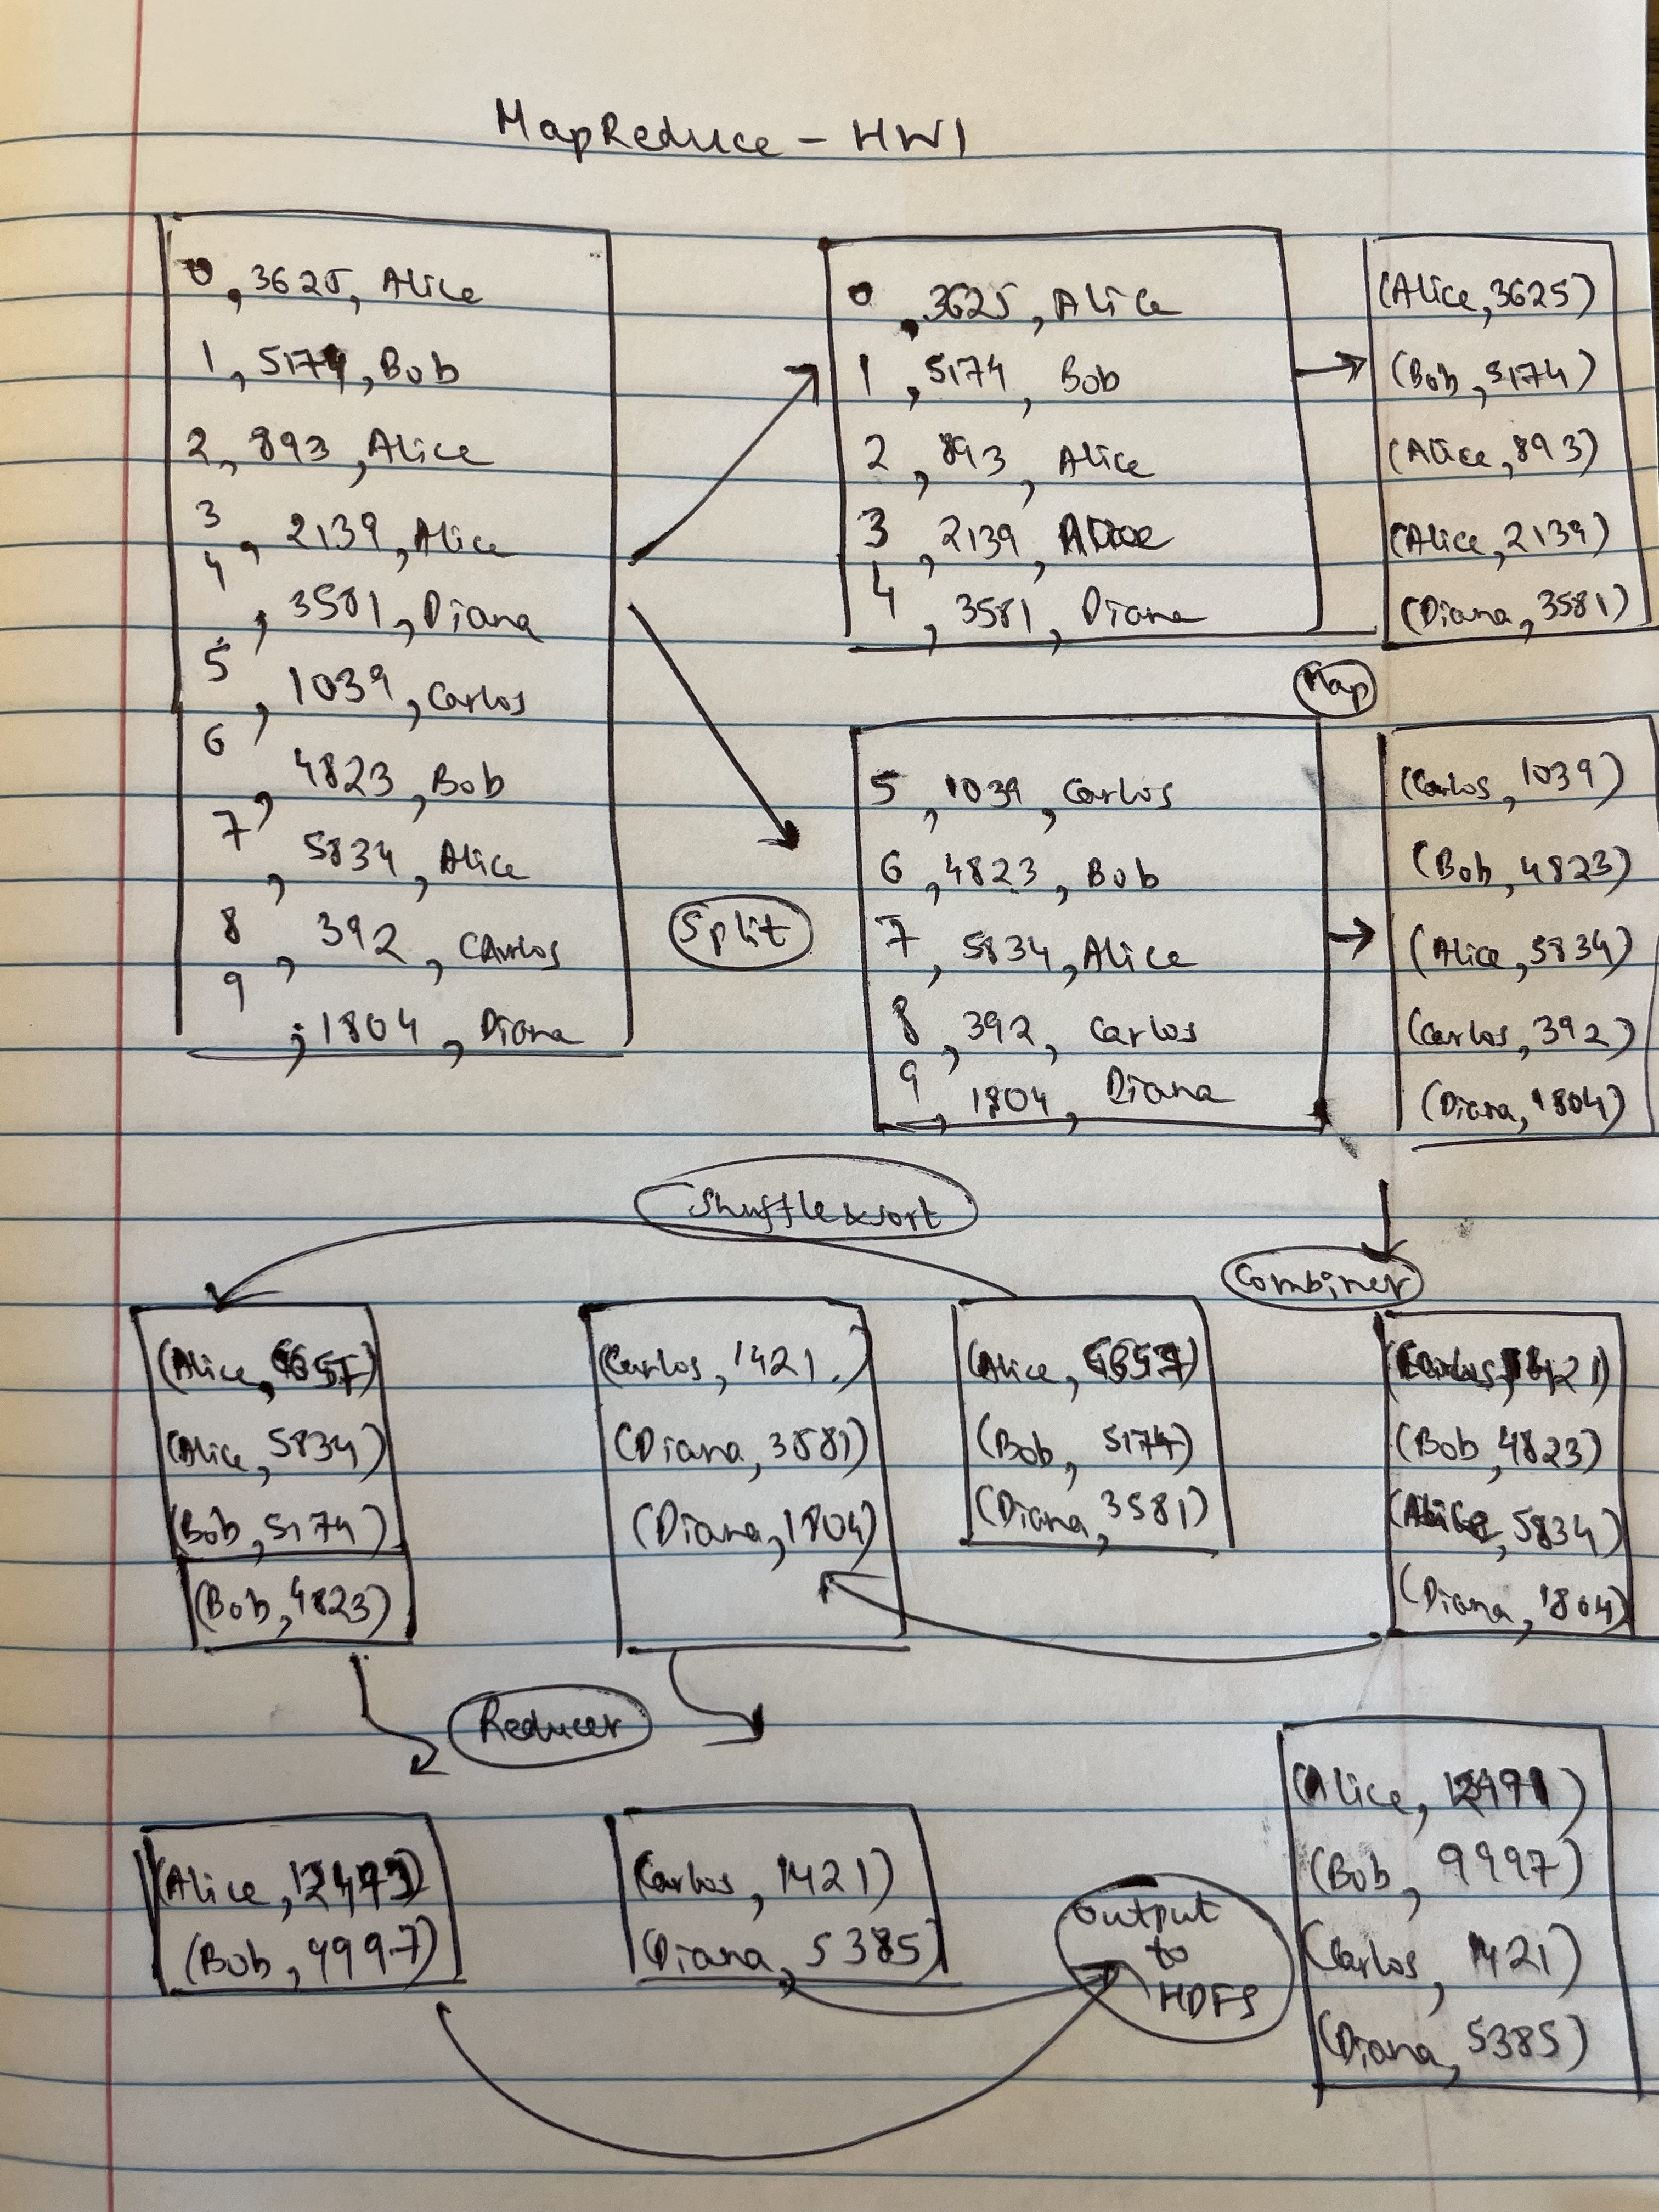 MapReduce - HW1
0, 3625, Alice
1, 5174, Bob
2, 893, Alice
3, 2139, Alice
4, 3581, Diana
5, 1039, Carlos
6, 4823, Bob
7, 5834, Alice
8, 392, Carlos
9, 1804, Diana
Split
0, 3625, Alice
1, 5174, Bob
2, 893, Alice
3, 2139, Alice
4, 3581, Diana
5, 1039, Carlos
6, 4823, Bob
7, 5834, Alice
8, 392, Carlos
9, 1804, Diana
Map
(Alice, 3625)
(Bob, 5174)
(Alice, 893)
(Alice, 2139)
(Diana, 3581)
(Carlos, 1039)
(Bob, 4823)
(Alice, 5834)
(Carlos, 392)
(Diana, 1804)
Combiner
(Carlos, 1421)
(Bob, 4823)
(Alice, 5834)
(Diana, 1804)
(Alice,
(Bob, 5174)
(Diana, 3581)
Shuffle & sort
(Alice,
(Alice, 5834)
(Bob, 5174)
(Bob, 4823)
(Carlos, 1421.)
(Diana, 3581)
(Diana, 1804)
Reducer
(Alice,
(Bob, 9997)
(Carlos, 1421)
(Diana, 5385)
Output
to
HDFS
(Alice,
(Bob, 9997)
(Carlos, 1421)
(Diana, 5385)